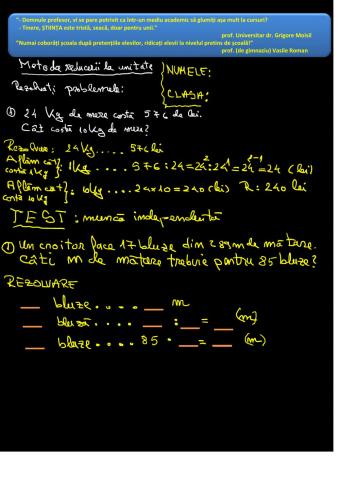 "- Domnule profesor, vi se pare potrivit ca într-un mediu academic să glumiți așa mult la cursuri?
- Tinere, ȘTIINȚA este tristă, seacă, doar pentru unii."
prof. Universitar dr. Grigore Moisil
"Numai coborâți școala după pretențiile elevilor, ridicați elevii la nivelul pretins de școală!"
prof. (de gimnaziu) Vasile Roman
Metoda reducerii la unitate
NUMELE:
Rezolvați problemele:
CLASA:
24 Kg de mere costă 576 de lei.
Cât costă 10 kg de mere?
Rezolvare: 24 kg ..... 576 lei
Aflăm cât costă 1 kg}: 1 kg .... 576 : 24 = 24² : 24¹ = 24²⁻¹ = 24 (lei)
Aflăm cât costă 10 kg}: 10 kg .... 24×10 = 240 (lei) R: 240 lei
TEST : muncă independentă
① Un croitor face 17 bluze din 289 m de mătase.
Câți m de mătase trebuie pentru 85 bluze?
REZOLVARE
__ bluze .... __ m
__ bluză .... __ : __ = __ (m)
__ bluze .... 85 · __ = __ (m)